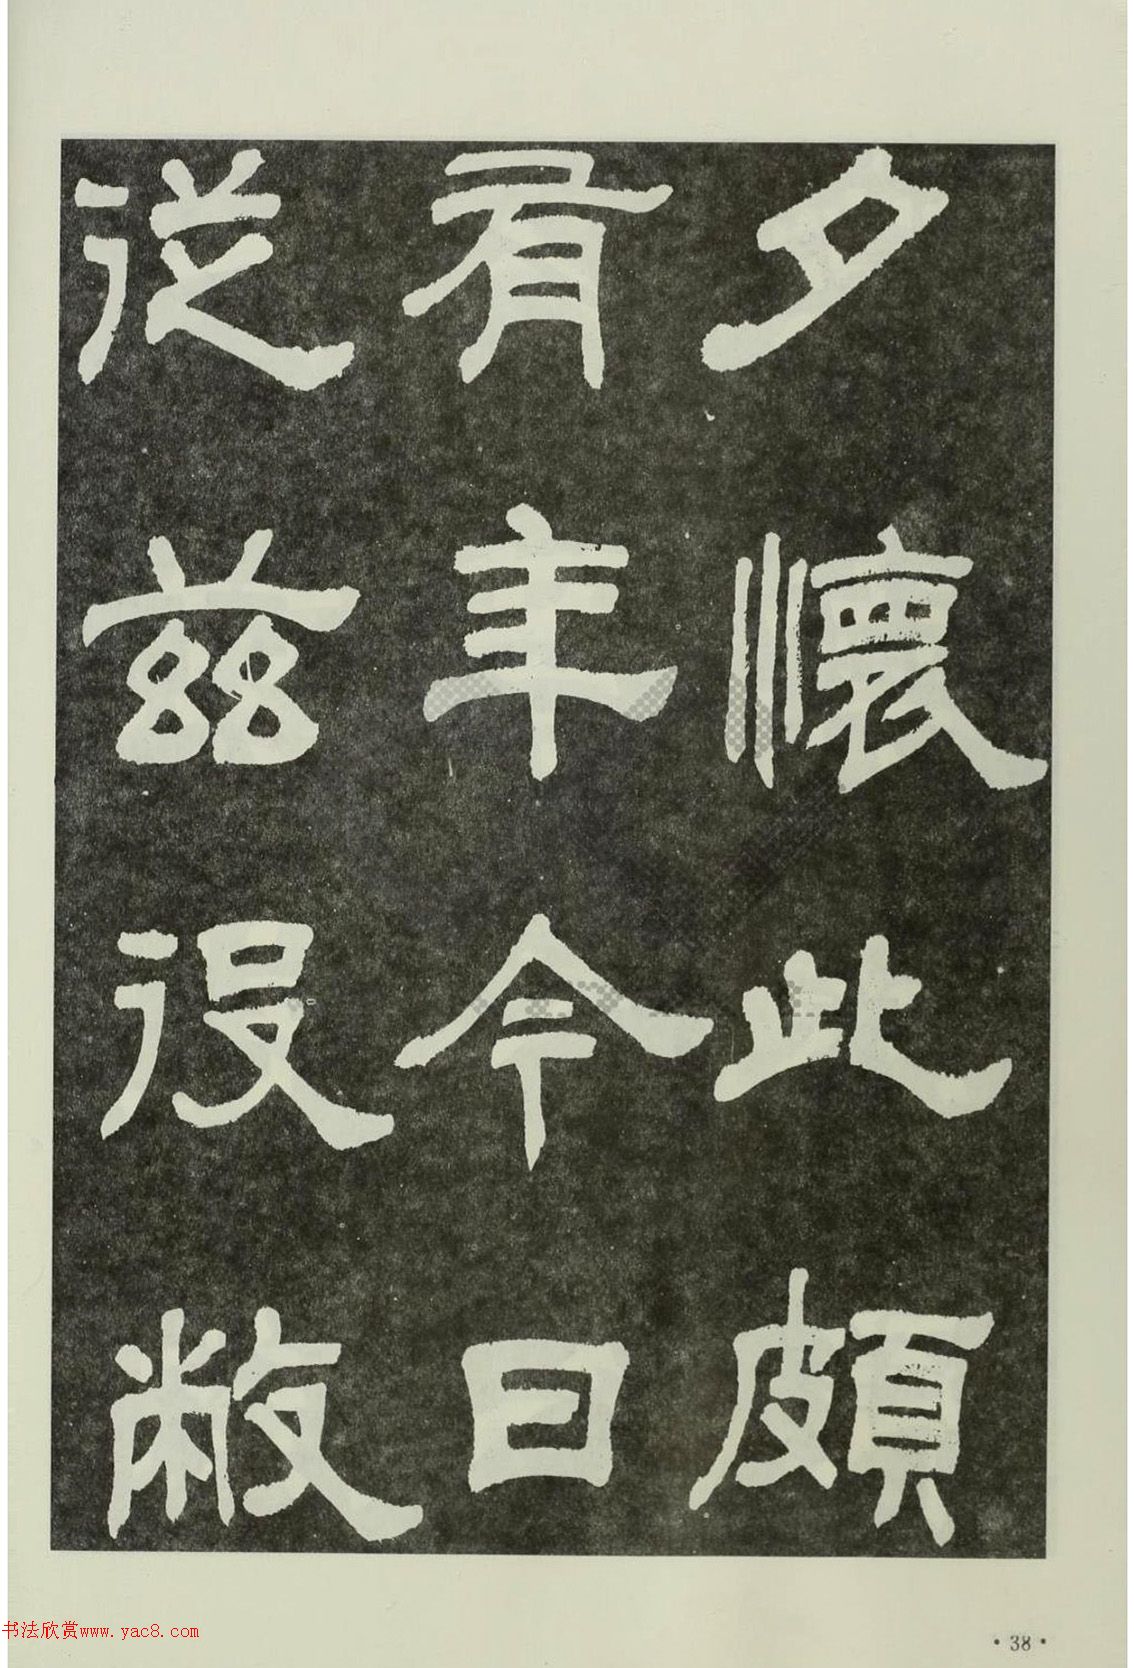 夕懷此頗
有年今日
從茲役敝
书法欣赏www.yac8.com
·38·